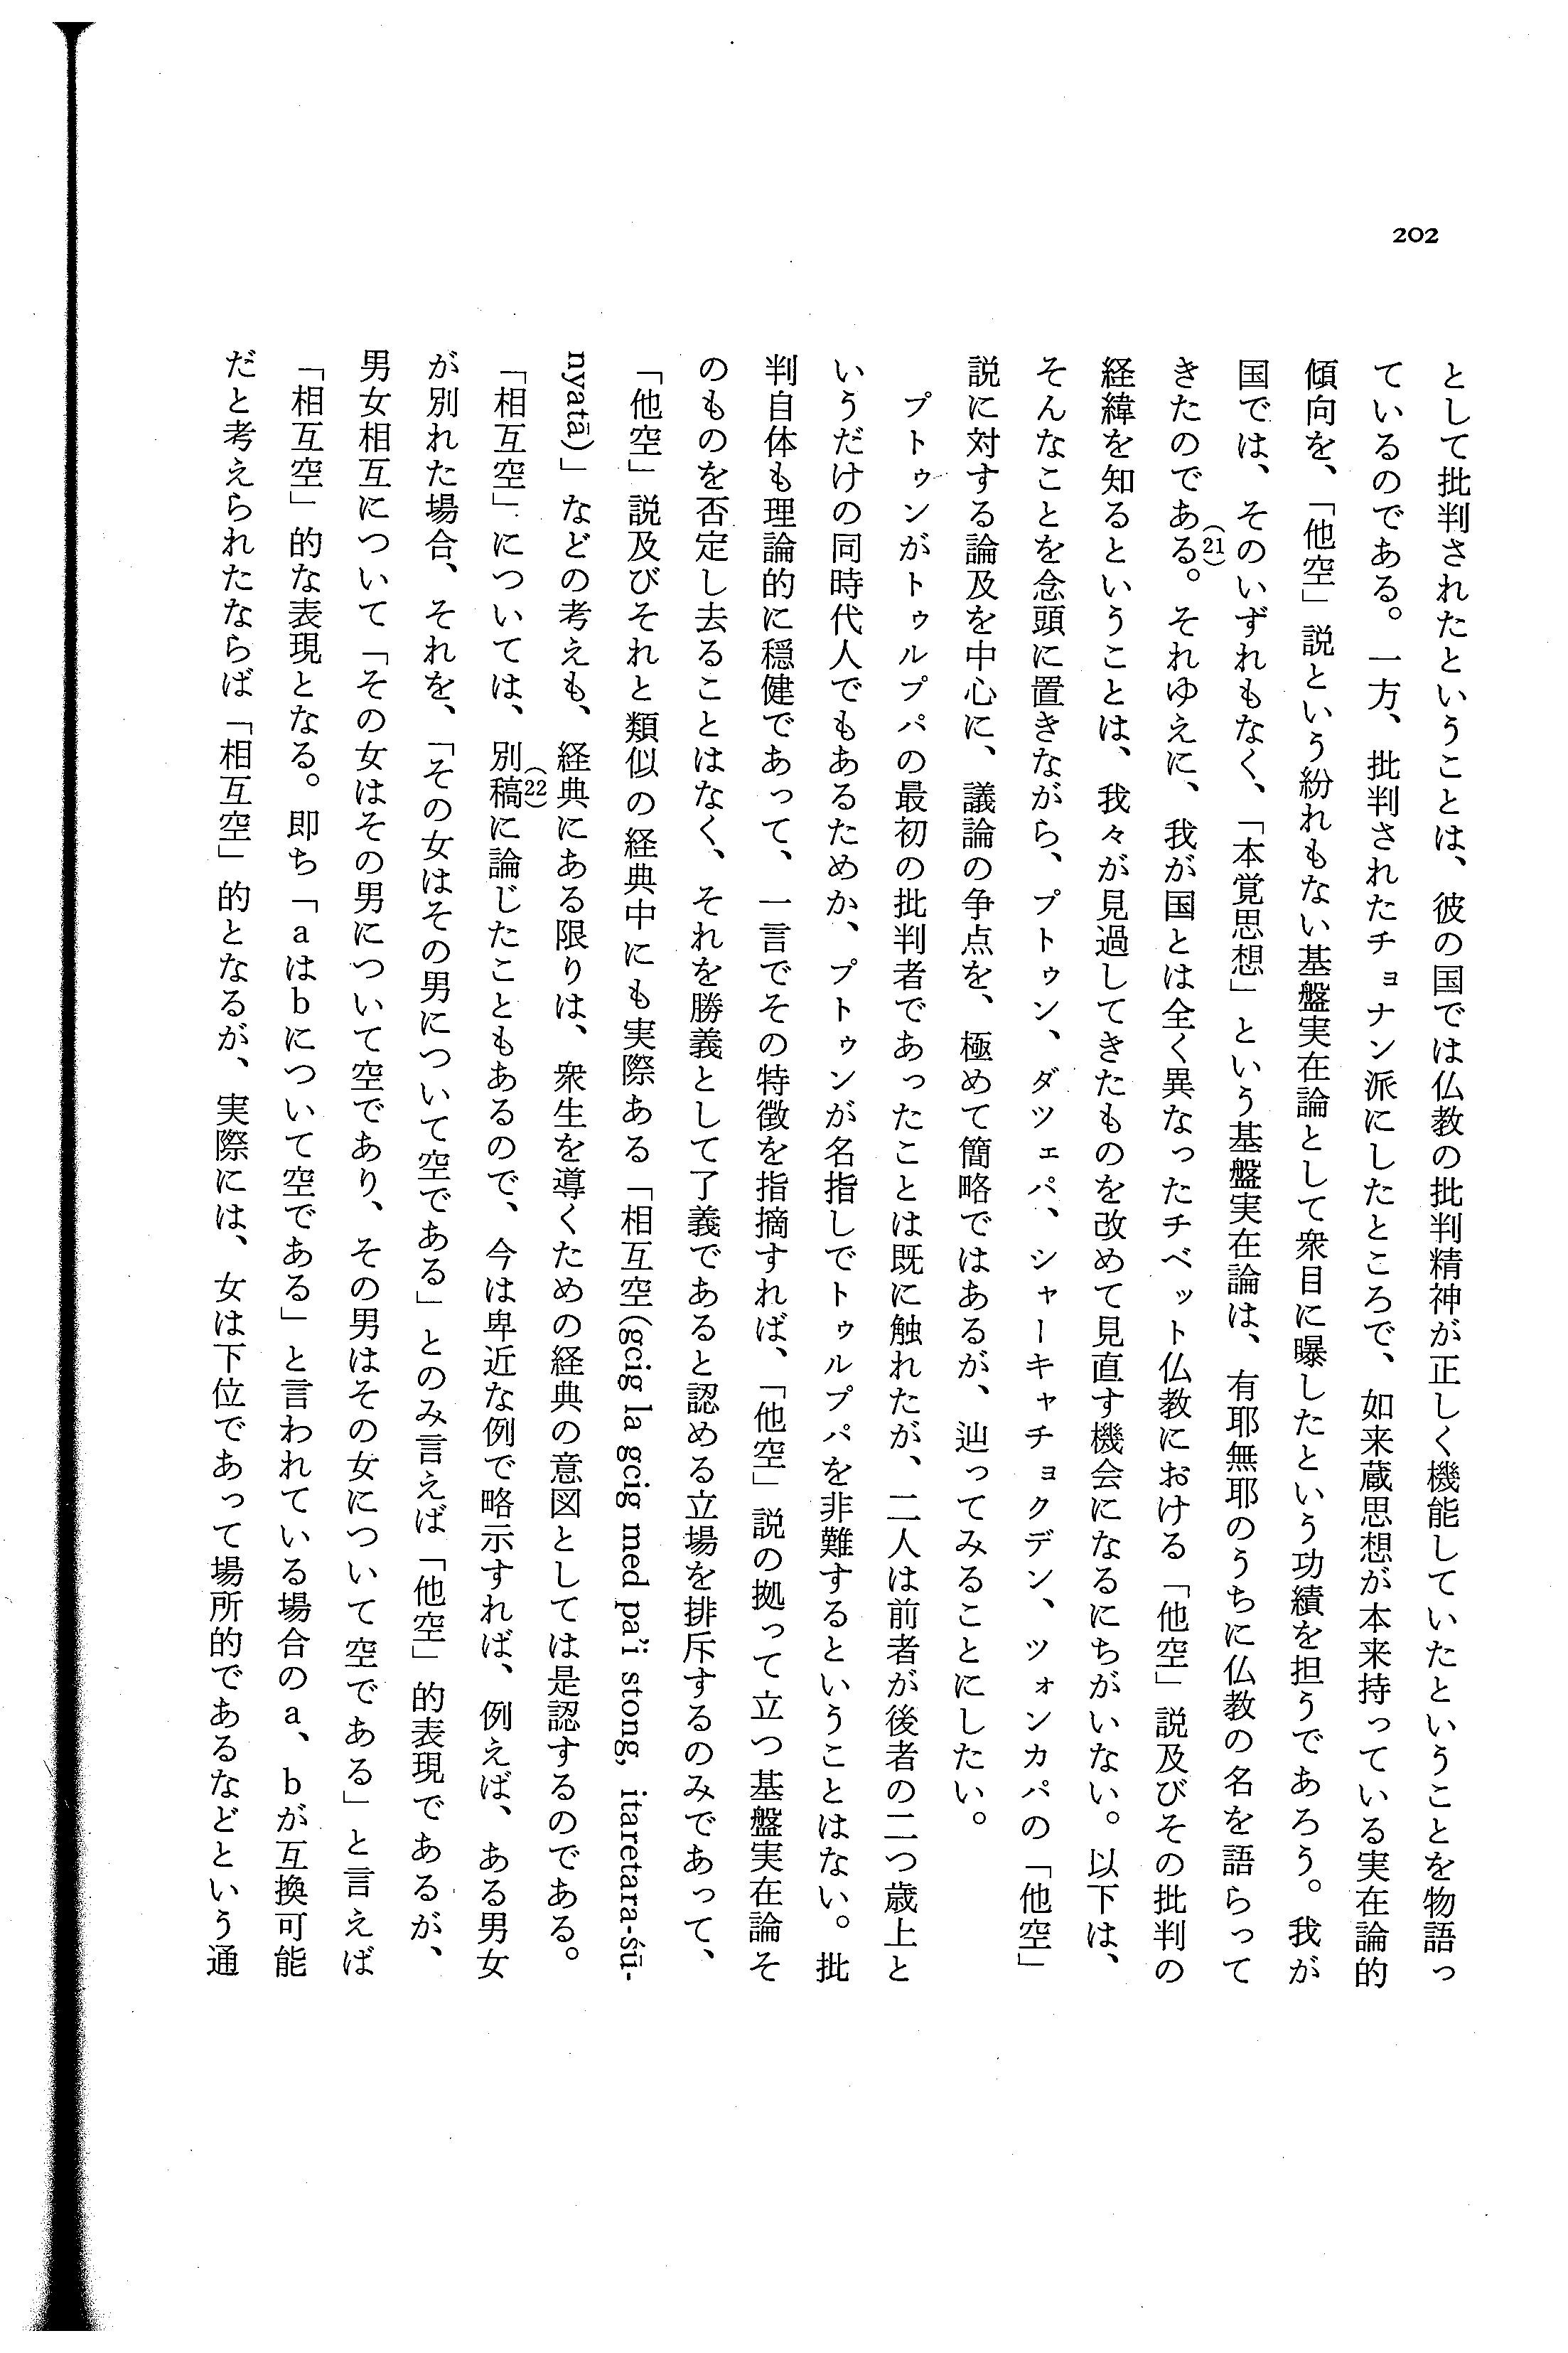 202
として批判されたということは、彼の国では仏教の批判精神が正しく機能していたということを物語っ
ているのである。一方、批判されたチョナン派にしたところで、如来蔵思想が本来持っている実在論的
傾向を、「他空」説という紛れもない基盤実在論として衆目に曝したという功績を担うであろう。我が
国では、そのいずれもなく、「本覚思想」という基盤実在論は、有耶無耶のうちに仏教の名を語らって
きたのである(21)。それゆえに、我が国とは全く異なったチベット仏教における「他空」説及びその批判の
経緯を知るということは、我々が見過してきたものを改めて見直す機会になるにちがいない。以下は、
そんなことを念頭に置きながら、プトゥン、ダツェパ、シャーキャチョクデン、ツォンカパの「他空」
説に対する論及を中心に、議論の争点を、極めて簡略ではあるが、辿ってみることにしたい。
プトゥンがトゥルプパの最初の批判者であったことは既に触れたが、二人は前者が後者の二つ歳上と
いうだけの同時代人でもあるためか、プトゥンが名指しでトゥルプパを非難するということはない。批
判自体も理論的に穏健であって、一言でその特徴を指摘すれば、「他空」説の拠って立つ基盤実在論そ
のものを否定し去ることはなく、それを勝義として了義であると認める立場を排斥するのみであって、
「他空」説及びそれと類似の経典中にも実際ある「相互空(gcig la gcig med pa'i stong, itaretara-śū-
nyatā)」などの考えも、経典にある限りは、衆生を導くための経典の意図としては是認するのである。
「相互空」については、別稿(22)に論じたこともあるので、今は卑近な例で略示すれば、例えば、ある男女
が別れた場合、それを、「その女はその男について空である」とのみ言えば「他空」的表現であるが、
男女相互について「その女はその男について空であり、その男はその女について空である」と言えば
「相互空」的な表現となる。即ち「aはbについて空である」と言われている場合のa、bが互換可能
だと考えられたならば「相互空」的となるが、実際には、女は下位であって場所的であるなどという通